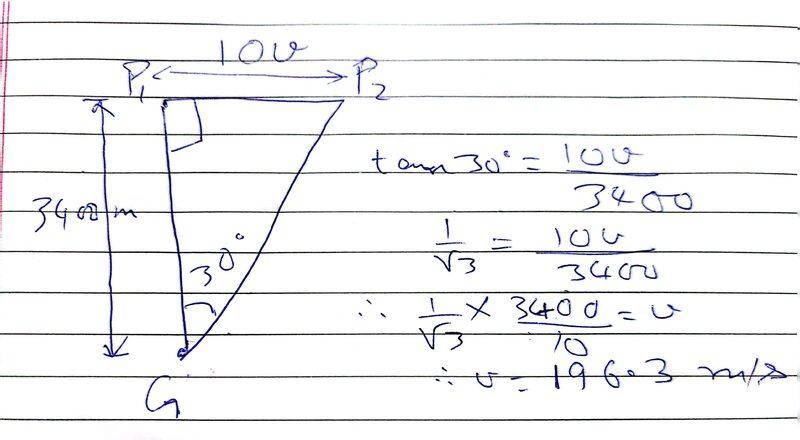 10v
P₁ P₂
3400 m
30°
G
tan 30° = 10v/3400
1/√3 = 10v/3400
∴ 1/√3 × 3400/10 = v
∴ v = 196.3 m/s